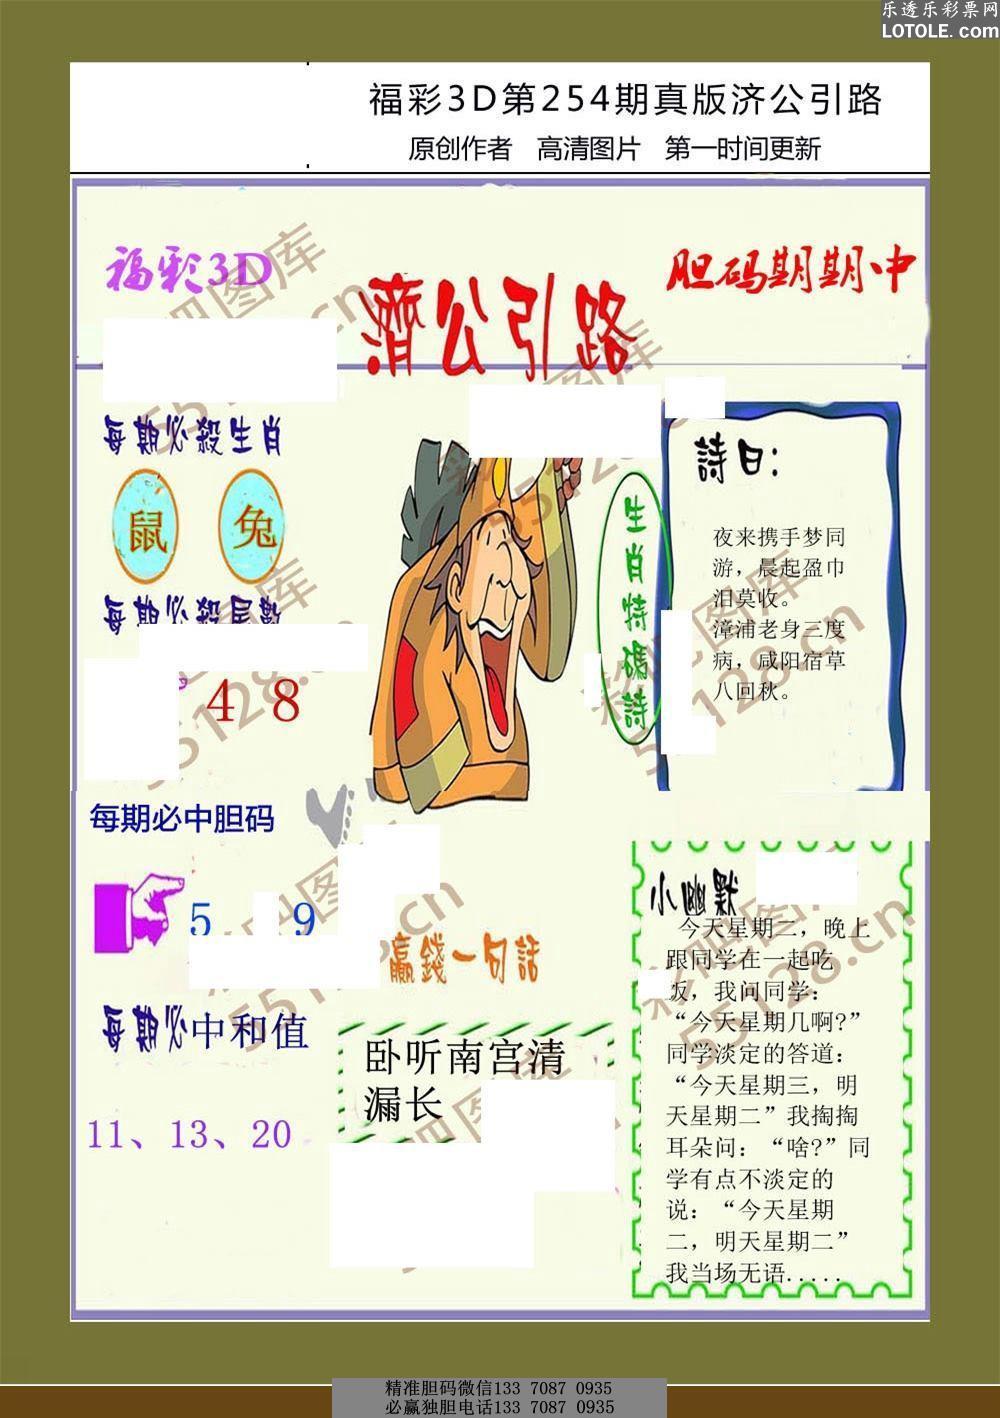 乐透乐彩票网
LOTOLE.com
福彩3D第254期真版济公引路
原创作者 高清图片 第一时间更新
福彩3D
胆码期期中
濟公引路
每期必殺生肖
鼠 兔
每期必殺尾數
4 8
每期必中胆码
5 9
每期必中和值
11、13、20
生肖特碼詩
詩曰:
夜来携手梦同
游，晨起盈巾
泪莫收。
漳浦老身三度
病，咸阳宿草
八回秋。
赢錢一句話
卧听南宫清
漏长
小幽默
今天星期二，晚上
跟同学在一起吃
饭，我问同学：
“今天星期几啊?”
同学淡定的答道：
“今天星期三，明
天星期二”我掏掏
耳朵问：“啥?”同
学有点不淡定的
说：“今天星期
二，明天星期二”
我当场无语.....
彩吧图库
55128.cn
精准胆码微信133 7087 0935
必赢独胆电话133 7087 0935